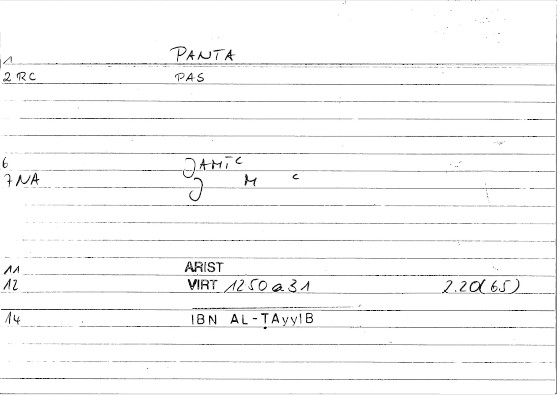 1 PANTA
2 RC PAS
6 JAMĪʿ
7 NA J M ʿ
11 ARIST
12 VIRT 1250 a 31 2.20(65)
14 IBN AL-ṬAyyIB